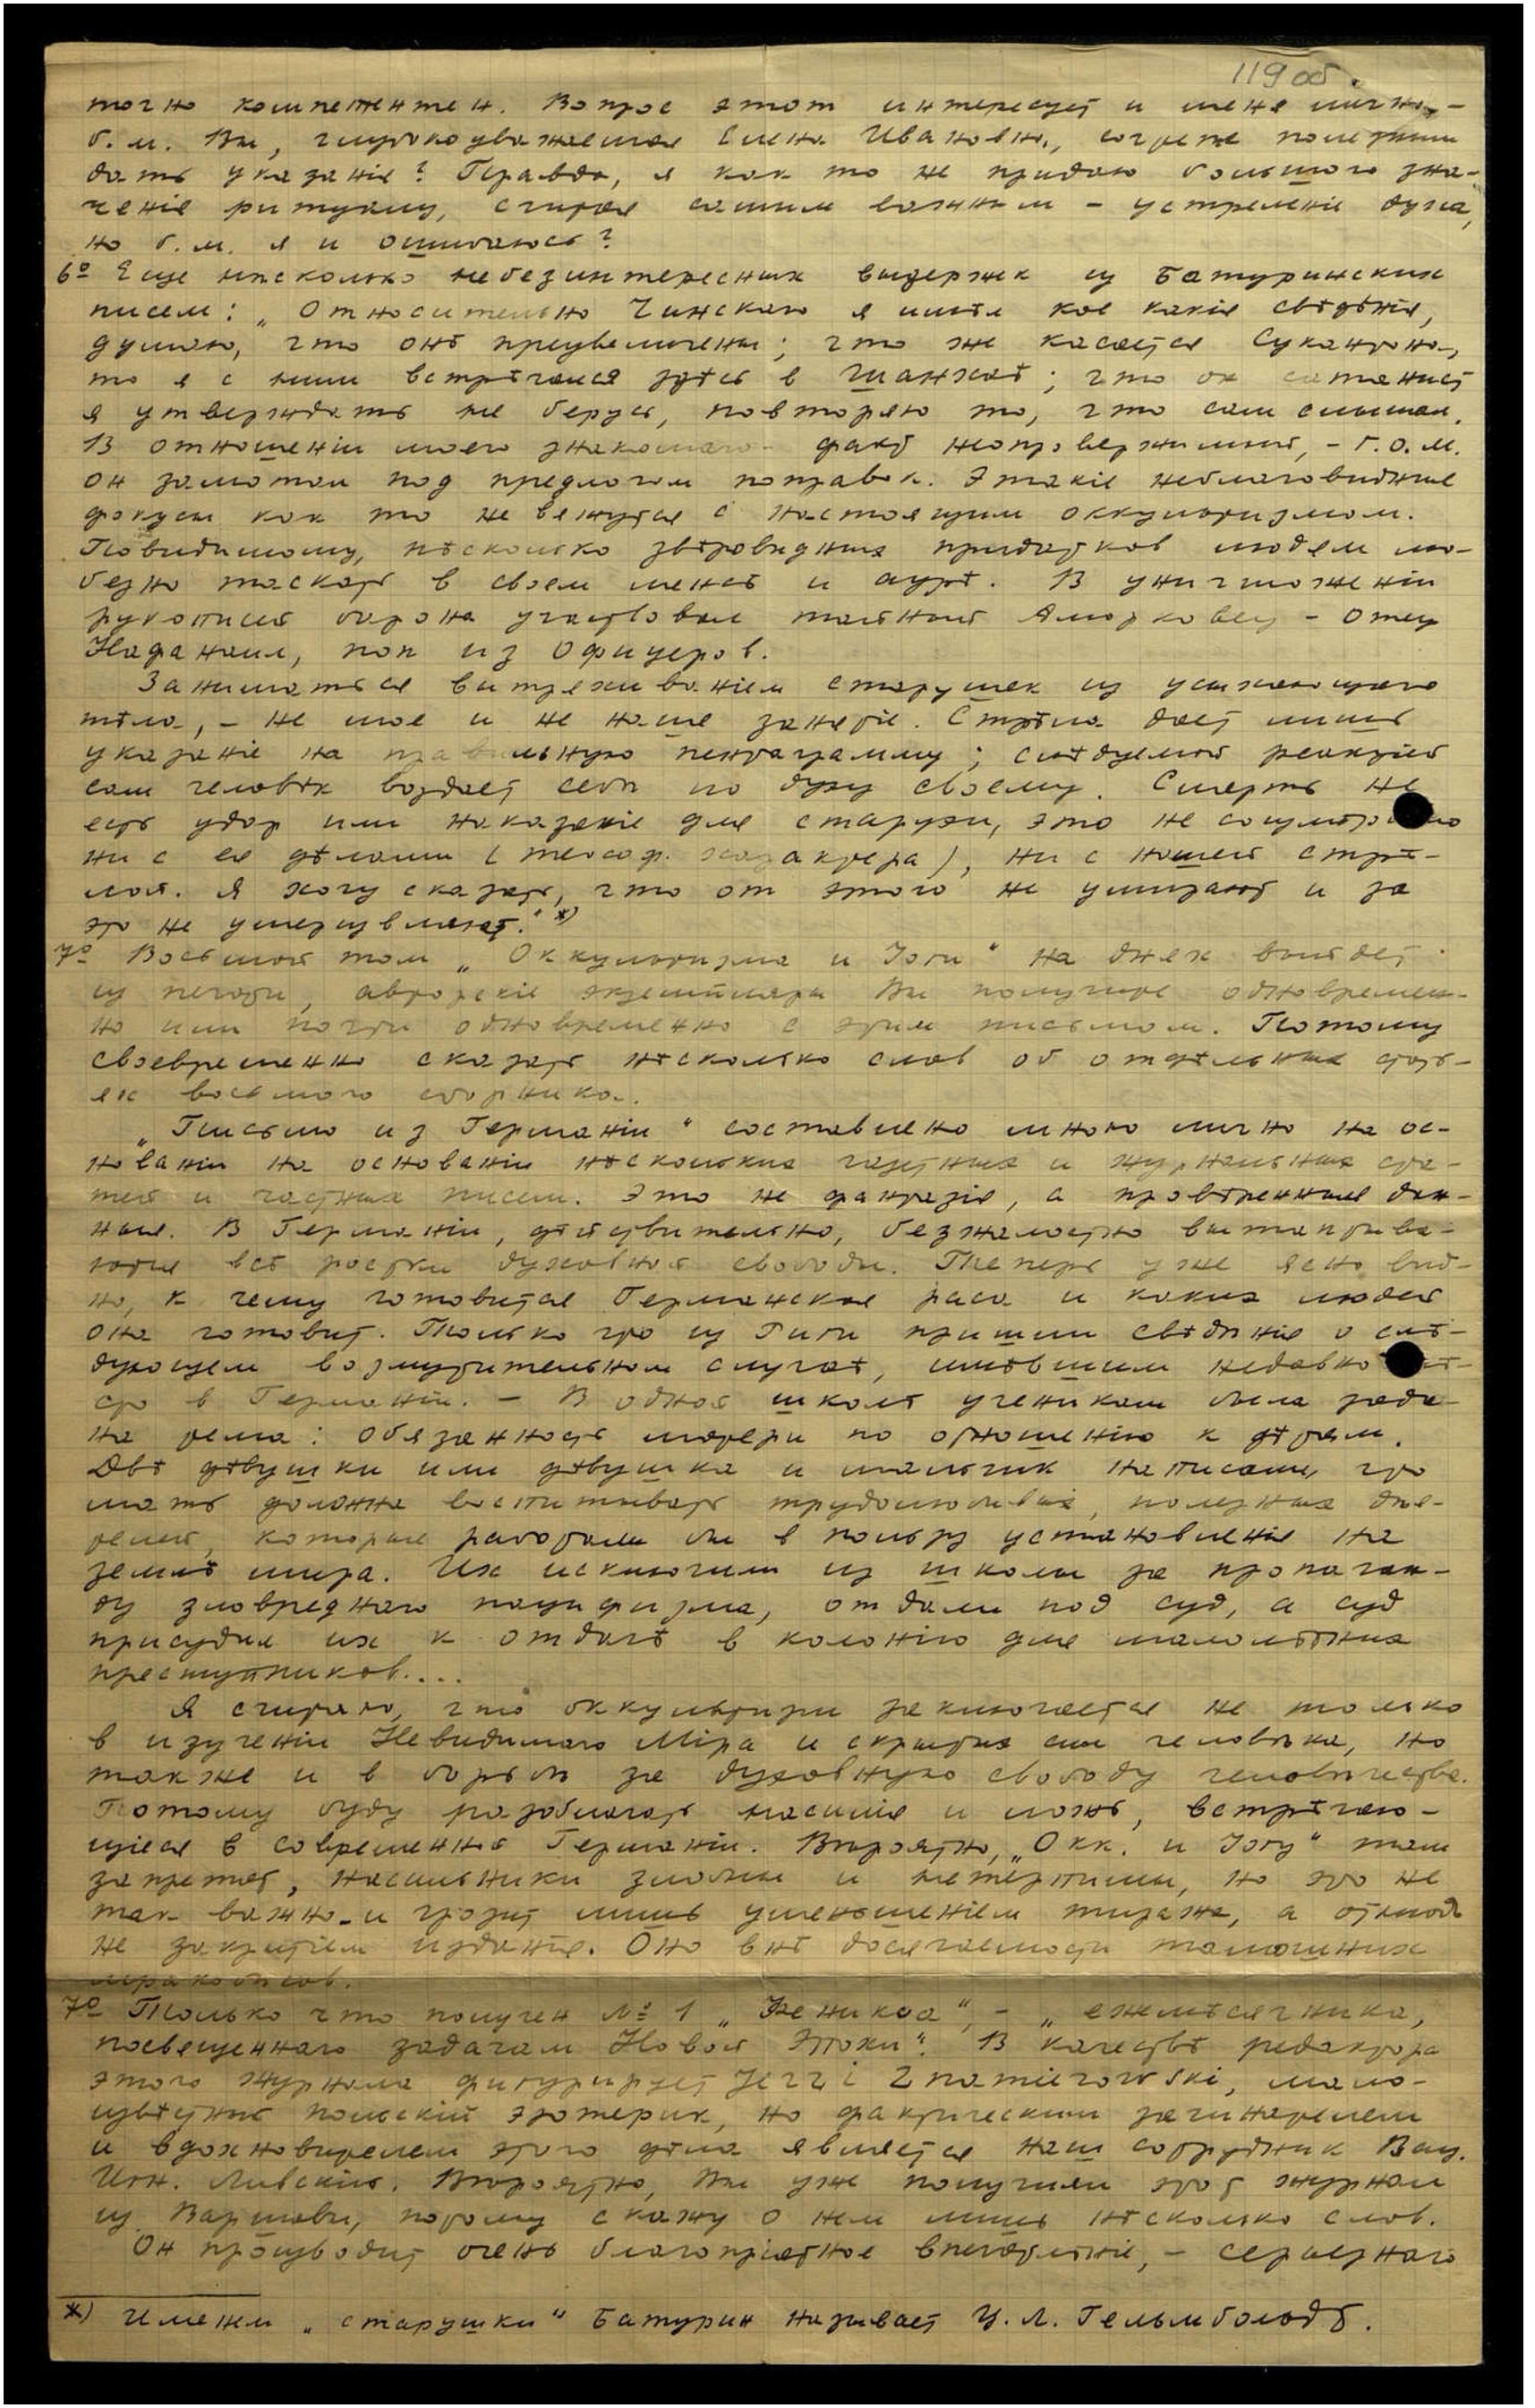 119об.
точно компетентен. Вопрос этот интересует и меня лично, –
б. м. Вы, глубокоуважаемая Елена Ивановна, сочтете полезным
дать указанія? Правда, я как то не придаю большого зна-
ченія ритуалу, считая самым важным – устремленіе духа,
но б. м. я и ошибаюсь?
6º Еще нѣсколько небезинтересных выдержек из Батуринских
писем: „Относительно Чинскаго я имѣл кое какія свѣдѣнія,
думаю, что онѣ преувеличены; что же касается
то я с ним встрѣчался здѣсь в Шанхаѣ; что он сатанист
я утверждать не берусь, повторяю то, что сам слышал.
В отношеніи моего знакомаго – факт неопровержимый, – Г.О.М.
он замотал под предлогом поправок. Этакіе неблаговидные
фокусы как то не вяжутся с настоящим оккультизмом.
Повидимому, нѣсколько звѣровидных придатков людям лю-
безно таскать в своем менсѣ и аурѣ. В уничтоженіи
рукописей барона участвовал тайный Аморковец – отец
Нафанаил, поп из офицеров.
Заниматься вытряхиваніем старушек из
тѣла, – не мое и не наше занятіе. Стрѣла дает лишь
указаніе на правильную пентаграмму; слѣдуемой реакціей
сам человѣк воздает себѣ по духу своему. Смерть не
есть удар или наказаніе для старухи, это не
ни с ея дѣлами (теософ. характера), ни с нашей стрѣ-
лой. Я хочу сказать, что от этого не умирают и за
это не умерщвляют.“ *)
7º Восьмой том „Оккультизма и Іоги“ на днях выйдет
из печати, авторскіе экземпляры Вы получите одновремен-
но или почти одновременно с этим письмом. Потому
своевременно сказать нѣсколько слов об отдѣльных стать-
ях восьмого сборника.
„Письмо из Германіи“ составлено мною лично на ос-
нованіи на основаніи нѣскольких газетных и журнальных ста-
тей и частных писем. Это не фантазія, а провѣренныя дан-
ныя. В Германіи, дѣйствительно, безжалостно вытаптыва-
ются всѣ ростки духовной свободы. Теперь уже ясно вид-
но, к чему готовится Германская раса и каких людей
она готовит. Только что из Риги пришли свѣдѣнія о слѣ-
дующем возмутительном случаѣ, имѣвшим недавно мѣ-
сто в Германіи. – В одной школѣ ученикам была зада-
на тема: обязанность матери по отношенію к дѣтям.
Двѣ дѣвушки или дѣвушка и мальчик написали, что
мать должна воспитывать трудолюбивых, полезных дѣя-
телей, которые работали бы в пользу установленія на
землѣ мира. Их исключили из школы за пропаган-
ду зловреднаго пацифизма, отдали под суд, а суд
присудил их к отдачѣ в колонію для малолѣтних
преступников....
Я считаю, что оккультизм заключается не только
в изученіи Невидимаго Міра и скрытых сил человѣка, но
также и в борьбѣ за духовную свободу человѣчества.
Потому буду разоблачать насилія и ложь, встрѣчаю-
щіеся в современной Германіи. Вѣроятно, „Окк. и Іогу“ там
запретят, насильники злобны и нетерпимы, но это не
так важно и грозит лишь уменьшеніем тиража, а отнюдь
не закрытіем изданія. Оно внѣ досягаемости тамошних
мракобѣсов.
7º Только что получен № 1 „Феникса“, – „ежемѣсячника,
посвященнаго задачам Новой Эпохи“. В качествѣ редактора
этого журнала фигурирует Jerzi Znamierowski, мало-
извѣстный польскій эзотерик, но фактическим зачинателем
и вдохновителем этого дѣла является наш сотрудник Вац.
Игн. Ливскій. Вѣроятно, Вы уже получили этот журнал
из Варшавы, потому скажу о нем лишь нѣсколько слов.
Он производит очень благопріятное впечатлѣніе, – серьезнаго
*) Именем „старушки“ Батурин называет Ц. Л. Гельмбольдт.